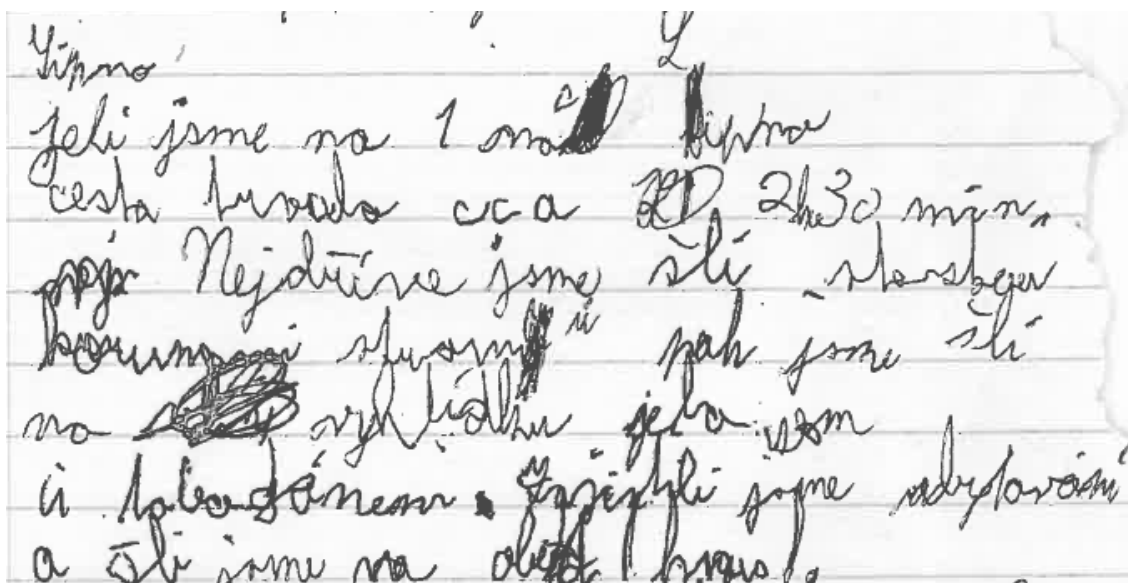 Lipno
jeli jsme na 1 noc Lipno
cesta trvala cca 2h30 min,
Nejdříve jsme šli
korunami stromů pak jsme šli
na vyhlídku jela jsem
i tobogánem. Zjistili jsme ubytování
a šli jsme na oběd